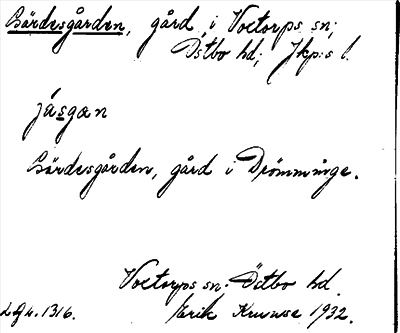 Bärdesgården, gård i Voetorps sn;
Östbo hd; Jkp:s l.
jásgæn
Bärdesgården, gård i Drömminge.
Voetorps sn. Östbo hd.
Erik Kruuse 1932.